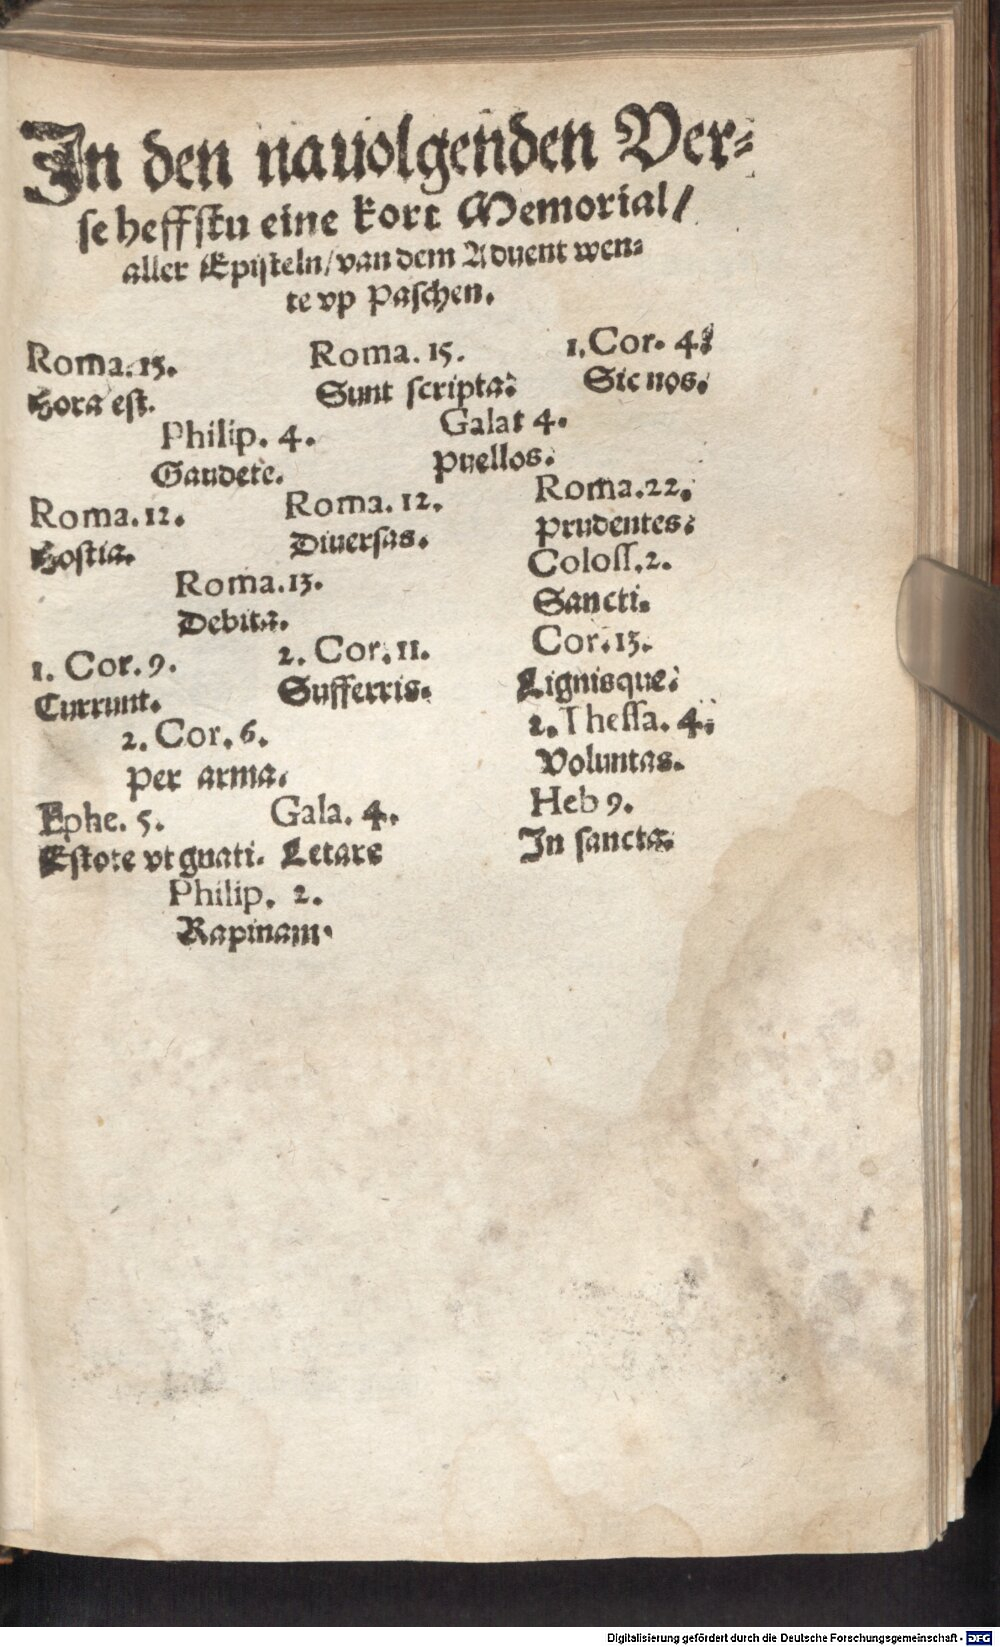 In den nauolgenden Ver-
se heffstu eine kort Memorial/
aller Episteln/van dem Aduent wen-
te vp Paschen.
Roma.13. Roma.15. 1.Cor. 4.
Hora est. Sunt scripta. Sic nos.
Philip. 4. Galat 4.
Gaudete. Puellos.
Roma.12. Roma. 12. Roma.22.
Hostia. Diuersas. Prudentes.
Roma.13. Coloss.2.
Debita. Sancti.
1. Cor.9. 2. Cor.11. Cor.13.
Currunt. Sufferris. Lignisque.
2. Cor.6. 1.Thessa. 4.
Per arma. Voluntas.
Ephe. 5. Gala. 4. Heb 9.
Estote vt gnati. Letare In sancta.
Philip. 2.
Rapinam.
Digitalisierung gefördert durch die Deutsche Forschungsgemeinschaft - DFG